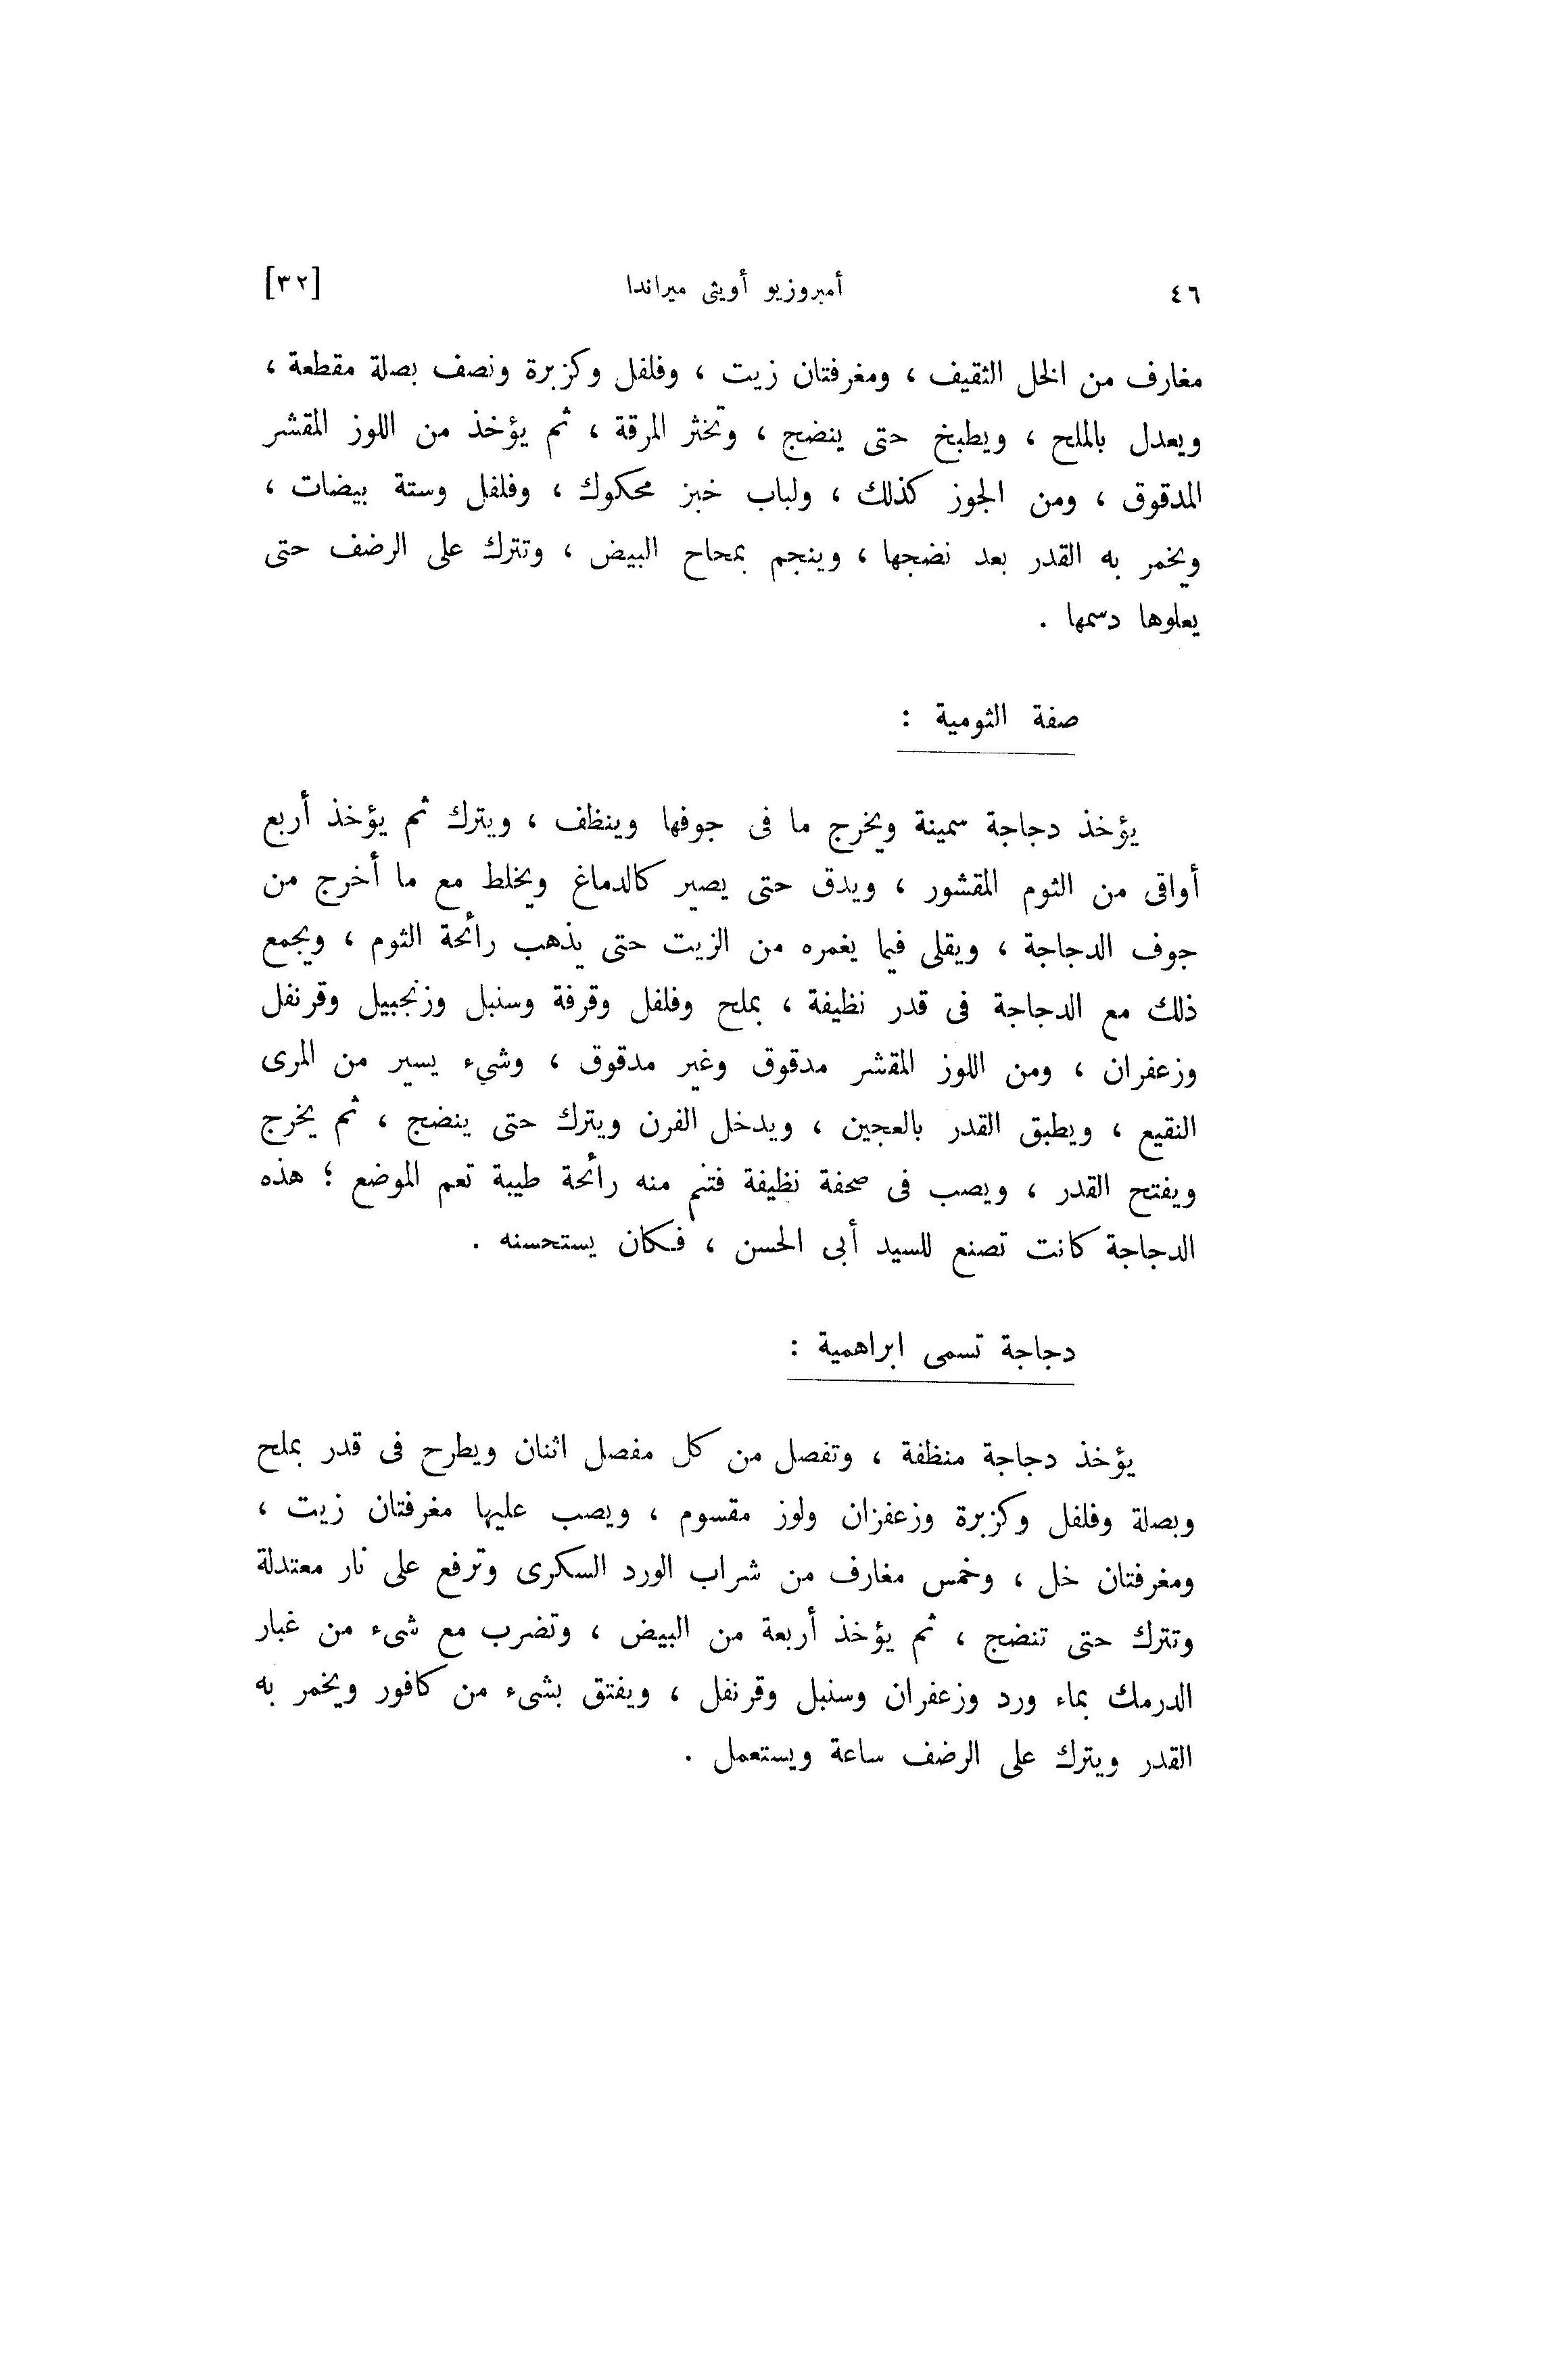 ٤٦ أمبروزيو أويثى ميراندا [٣٢]
مغارف من الخل الثقيف ، ومغرفتان زيت ، وفلفل وكزبرة ونصف بصلة مقطعة ،
ويعدل بالملح ، ويطبخ حتى ينضج ، وتخثر المرقة ، ثم يؤخذ من اللوز المقشر
المدقوق ، ومن الجوز كذلك ، ولباب خبز محكوك ، وفلفل وستة بيضات ،
ويخمر به القدر بعد نضجها ، وينجم بمحاح البيض ، وتترك على الرضف حتى
يعلوها دسمها .
صفة الثومية :
يؤخذ دجاجة سمينة ويخرج ما فى جوفها وينظف ، ويترك ثم يؤخذ أربع
أواقى من الثوم المقشور ، ويدق حتى يصير كالدماغ ويخلط مع ما أخرج من
جوف الدجاجة ، ويقلى فيما يغمره من الزيت حتى يذهب رائحة الثوم ، ويجمع
ذلك مع الدجاجة فى قدر نظيفة ، بملح وفلفل وقرفة وسنبل وزنجبيل وقرنفل
وزعفران ، ومن اللوز المقشر مدقوق وغير مدقوق ، وشيء يسير من المرى
النقيع ، ويطبق القدر بالعجين ، ويدخل الفرن ويترك حتى ينضج ، ثم يخرج
ويفتح القدر ، ويصب فى صحفة نظيفة فتنم منه رائحة طيبة تعم الموضع ؛ هذه
الدجاجة كانت تصنع للسيد أبى الحسن ، فكان يستحسنه .
دجاجة تسمى ابراهمية :
يؤخذ دجاجة منظفة ، وتفصل من كل مفصل اثنان ويطرح فى قدر بملح
وبصلة وفلفل وكزبرة وزعفزان ولوز مقسوم ، ويصب عليها مغرفتان زيت ،
ومغرفتان خل ، وخمس مغارف من شراب الورد السكرى وترفع على نار معتدلة
وتترك حتى تنضج ، ثم يؤخذ أربعة من البيض ، وتضرب مع شىء من غبار
الدرمك بماء ورد وزعفران وسنبل وقرنفل ، ويفتق بشىء من كافور ويخمر به
القدر ويترك على الرضف ساعة ويستعمل .